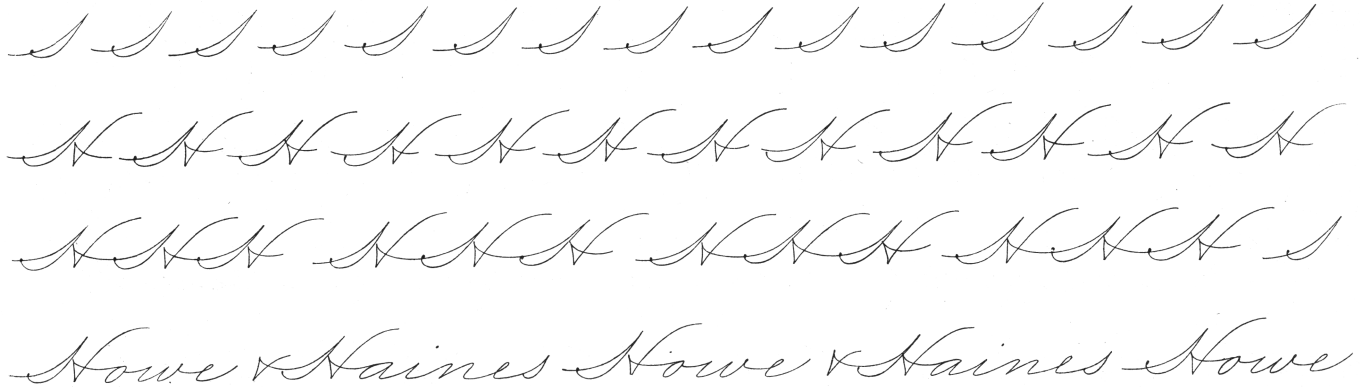 H H H H H H H H H H H H
HHH HHH HHH HHH
Howe & Haines Howe & Haines Howe